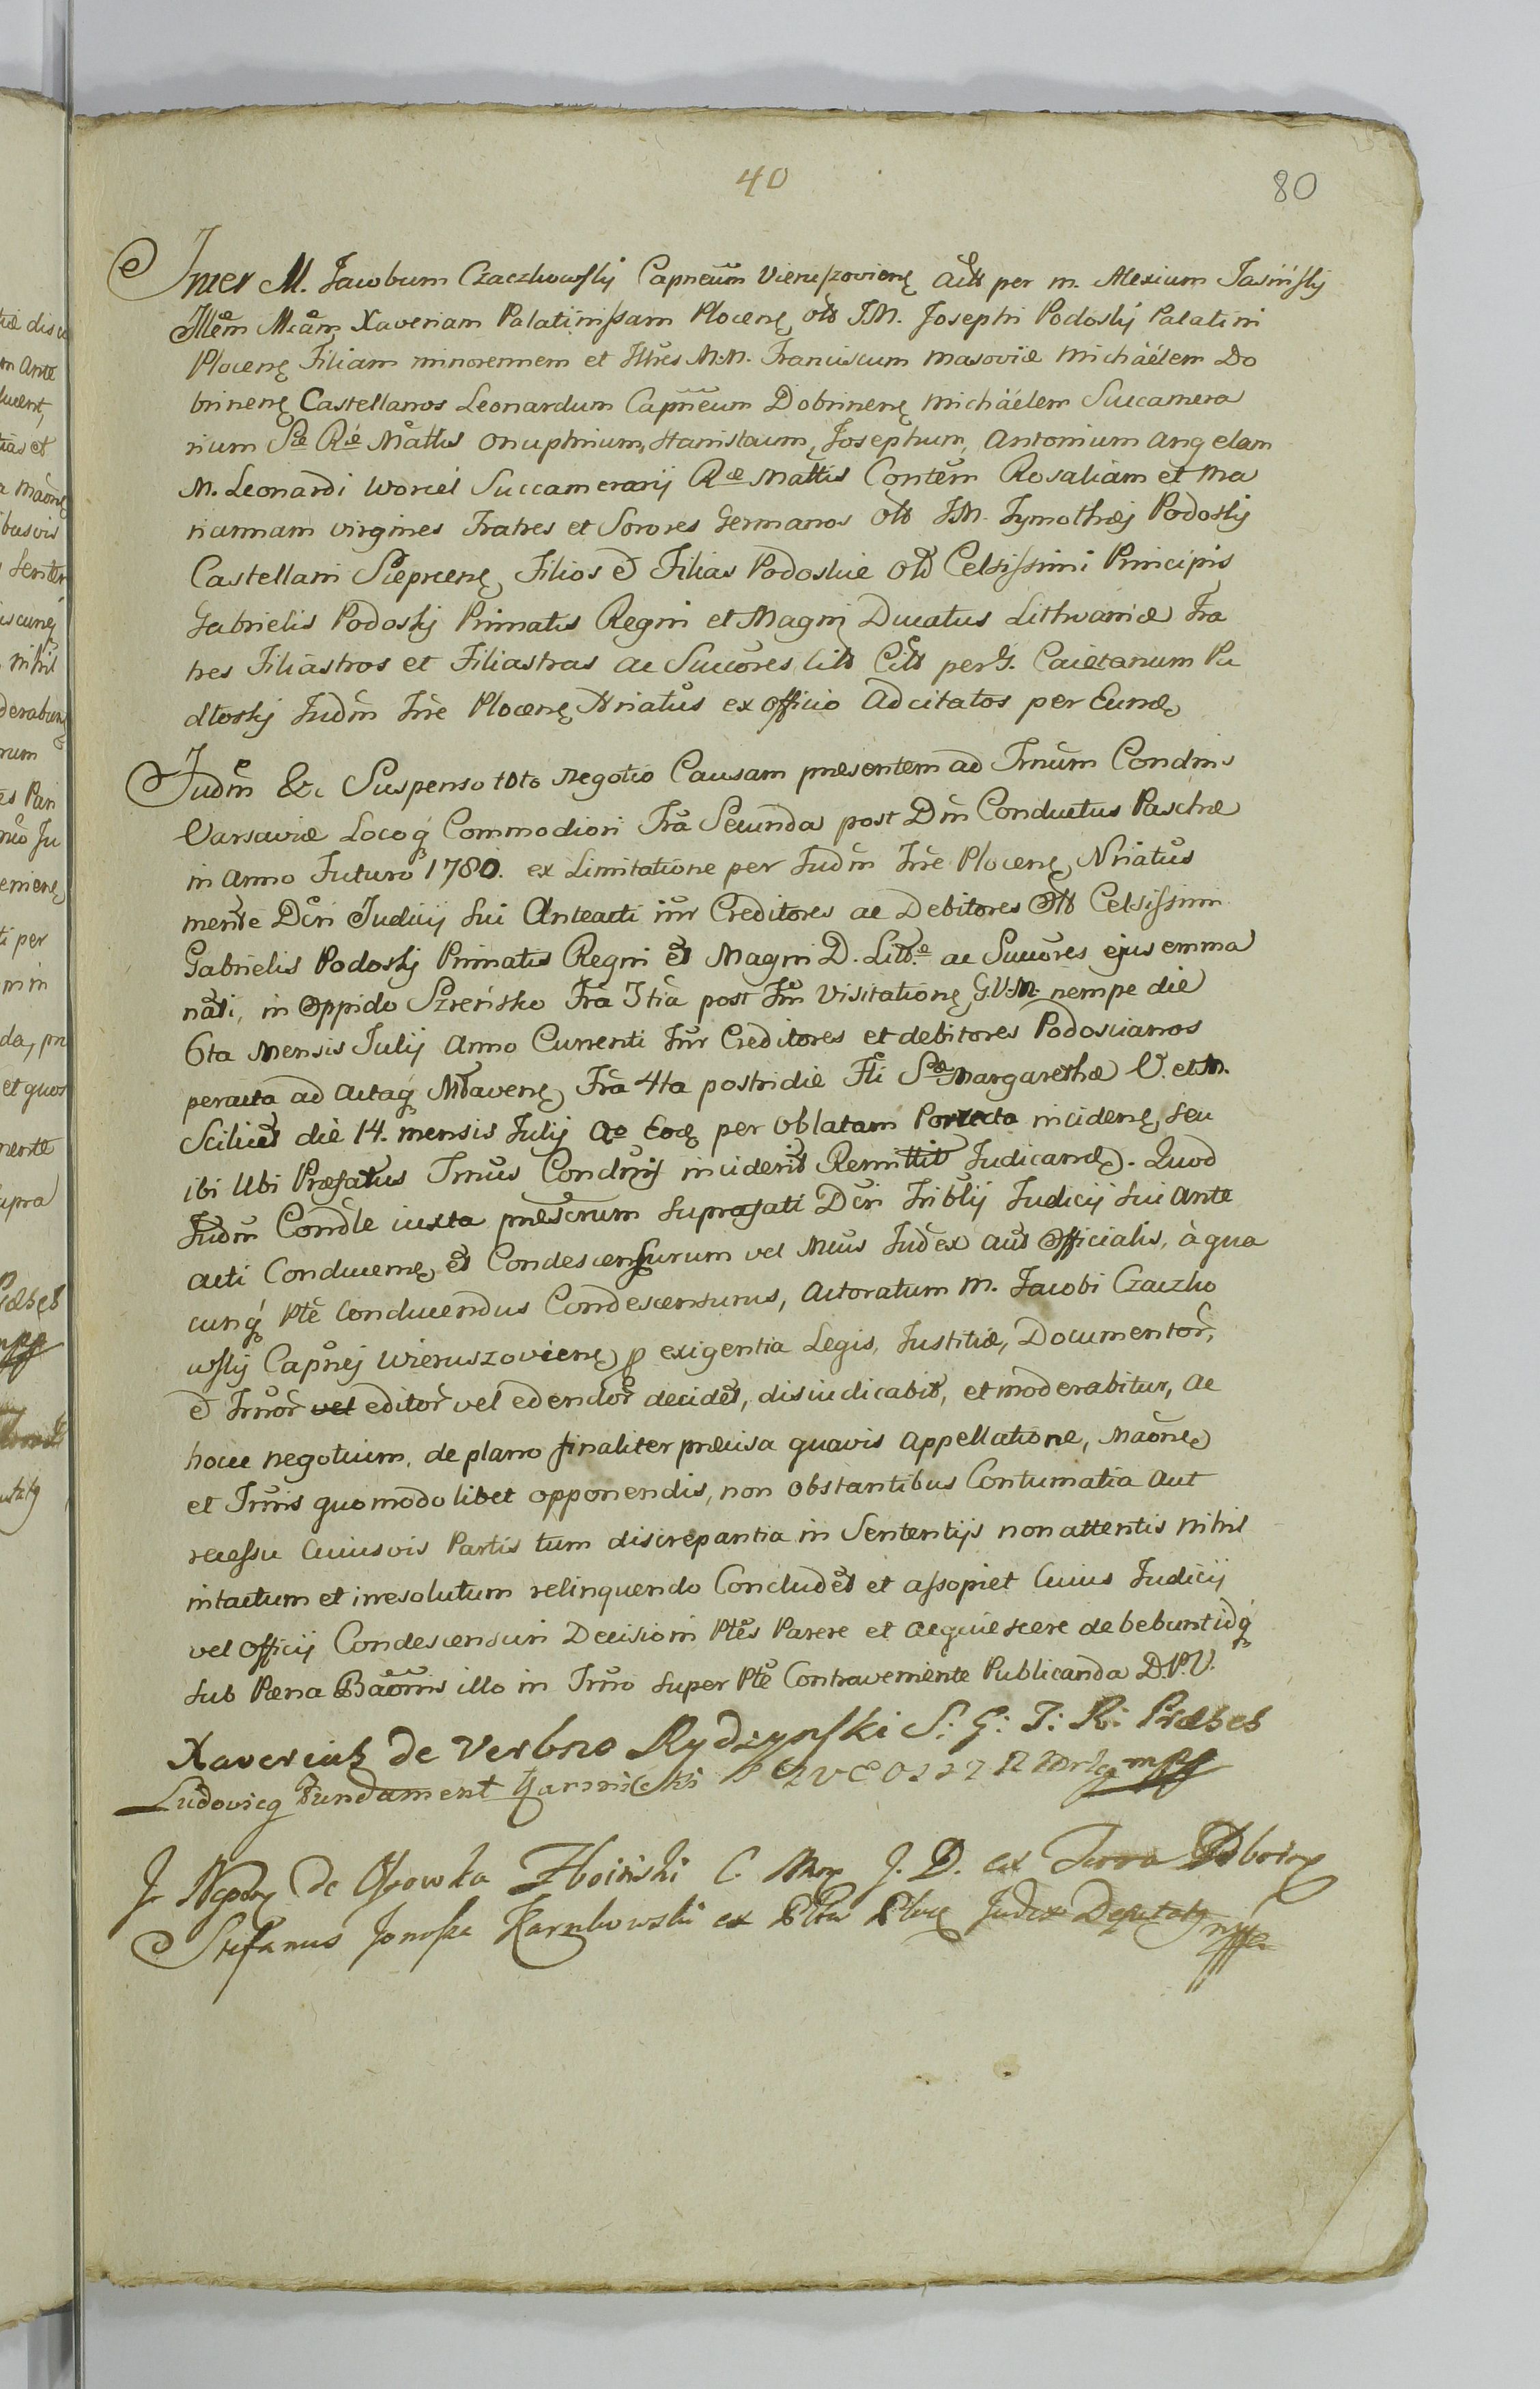 40
80
Inter M. Jacobum Czaczkowsky Capneūm Vieruszoviens Actb per m. Alexium Jasinsky
Jllem Mcam Xaveriam Palatinissam Plocens otb JM. Josephi Podosky Palatini
Plocens Filiam minorennem et Jllres M.M. Franciscum Masoviæ Michäélem Do
brinens Castellanos Leonardum Capneum Dobrinens Michäélem Succamera
rium Sæ Ræ Mattis Onuphrium, Stanislaum, Josephum, Antonium Angelam
M. Leonardi Worcel Succamerarij Ræ Mattis Contem Rosaliam et Ma
riannam virgines Fratres et Sorores Germanos otb JM. Tymothæj Podosky
Castellani Sieprcens Filios et Filias Podoskie otb Celsissimi Principis
Gabrielis Podosky Primatis Regni et Magni Ducatus Lithvaniæ Fra
tres Filiastros et Filiastras ac Succores Citb per G. Caietanum Pu
dlosky Judm Trre Plocens Nriatus ex officio Adcitatos per Eund
Judm &c Suspenso toto Negotio Causam præsentem ad Trnum Condnis
Varsaviæ Locoq Commodiori Fra Secunda post Dm Conductus Paschæ
in Anno Futuro 1780. ex Limitatione per Judm Trre Plocens Nriatus
mente Dcri Judicij sui Anteacti inr Creditores ac Debitores Otb Celsissimi
Gabrielis Podosky Primatis Regni et Magni D. Litt. ac Succores ejus emma
nati, in Oppido Szreńsko Fra 3tia post Fm Visitationis G.V.M. nempe die
6ta Mensis Julij Anno Currenti Inr Creditores et debitores Podoscianos
peracta ad Actaq Mlavens Fra 4ta postridie Fti Sæ Margarethæ V. et M.
Scilicet die 14. mensis Julij Ao Eod per Oblatam Porrecta incidens, seu
ibi Ubi Præfatus Trnus Condnis inciderit Remittit Judicand. Quod
Judm Condle iuxta præscrum suprafati Dcri Triblij Judicij sui Ante
acti Conducend, et Condescensurum vel Unus Judex aut Officialis, à qua
cunq Pte Conducendus Condescensurus, Actoratum M. Jacobi Czaczko
wsky Capnej Wieruszoviens p exigentia Legis, Justitiæ, Documentor,
et Jrnor vel editor vel edendor decidet, disiudicabit, et moderabitur, Ac
hocce negotium, de plano finaliter præcisa quavis Appellatione, Maone
et Jrnis quomodolibet opponendis, non obstantibus Contumatia Aut
recessu Cuiusvis Partis tum discrepantia in Sententijs non attentis nihil
intactum et irresolutum relinquendo Concludet et assopiet Cuius Judicij
vel Officij Condescensuri Decisioni Ptes Parere et Acquiescere debebunt idq
sub Pæna Baonis illo in Trno super Pte Contraveniente Publicanda D.P.V.
Xaverius de Verbno Rydzynski S: G: T: R: Præses
Ludovicq Fundament Karsnicki
J Nepoc de Ossowka Zboiński C. J. D. ex Terra Dobrin
Stefanus Jonosza Karnkowski ex Pltu Ploc Judex Deputatq mpp